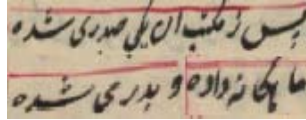 پس ز مکتب آن یکی صدری شده
ماهگانه داده و بدری شده